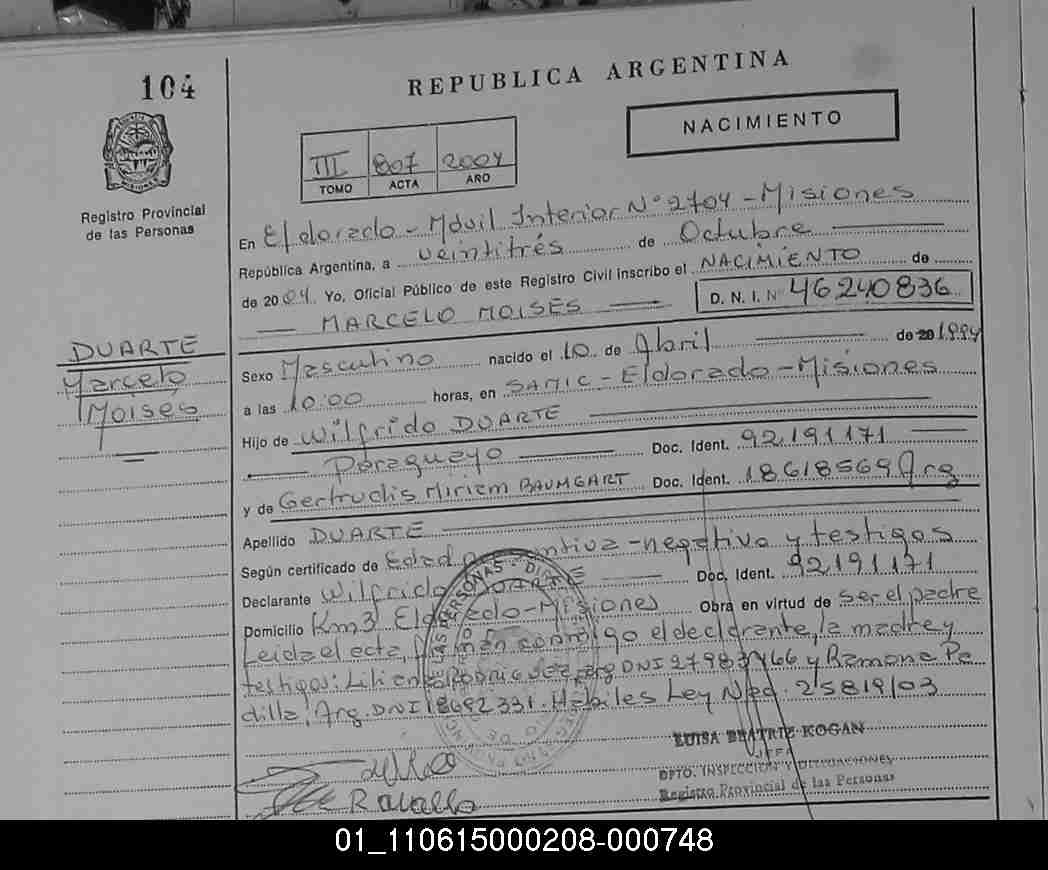 104
REPUBLICA ARGENTINA
NACIMIENTO
III 807 2004
TOMO ACTA AÑO
Registro Provincial
de las Personas
En Eldorado - Móvil Interior N° 2704 - Misiones
República Argentina, a veintitrés de Octubre
de 2004. Yo, Oficial Público de este Registro Civil inscribo el NACIMIENTO de
MARCELO MOISES D. N. I. N° 46240836
DUARTE
Marcelo
Moisés
Sexo Masculino nacido el 10 de Abril de 20 1994
a las 10:00 horas, en SAMIC - Eldorado - Misiones
Hijo de Wilfrido DUARTE
Paraguayo Doc. Ident. 92191171
y de Gertrudis Miriam BAUMGART Doc. Ident. 18618569 Arg
Apellido DUARTE
Según certificado de Edad presuntiva - negativa y testigos
Declarante Wilfrido DUARTE Doc. Ident. 92191171
Domicilio Km3 Eldorado - Misiones Obra en virtud de ser el padre
Leida el acta, firman conmigo el declarante, la madre y
testigos: Liliana Rodriguez Arg DNI y Ramona Pa
dilla, Arg. DNI 18692331. Hábiles Ley Nac. 25819/03
LUISA BEATRIZ KOGAN
JEFA
DPTO. INSPECCION Y DELEGACIONES
Registro Provincial de las Personas
01_110615000208-000748